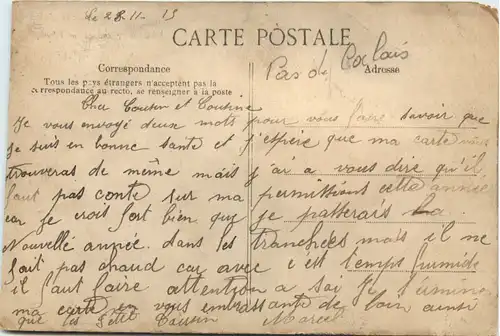 Le 28-11-15
CARTE POSTALE
Pas de Calais
Correspondance
Adresse
Tous les pays étrangers n'acceptent pas la
correspondance au recto, se renseigner à la poste
Cher Cousin et Cousine
Je vous envoyé deux mots pour vous faire savoir que
je suis en bonne santé et j'espière que ma carte vous
trouveras de même mais j'ai a vous dire qu'il
faut pas conté sur ma permittions cette année
car je crois fort bien que je passerais la
Nouvellé année dans les tranchées mais il ne
fait pas chaud car avec c'est temps humide
il faut faire attention a soi Je términe
ma carte en vous embrassante de loin ainsi
que les petit Cousin Marcel